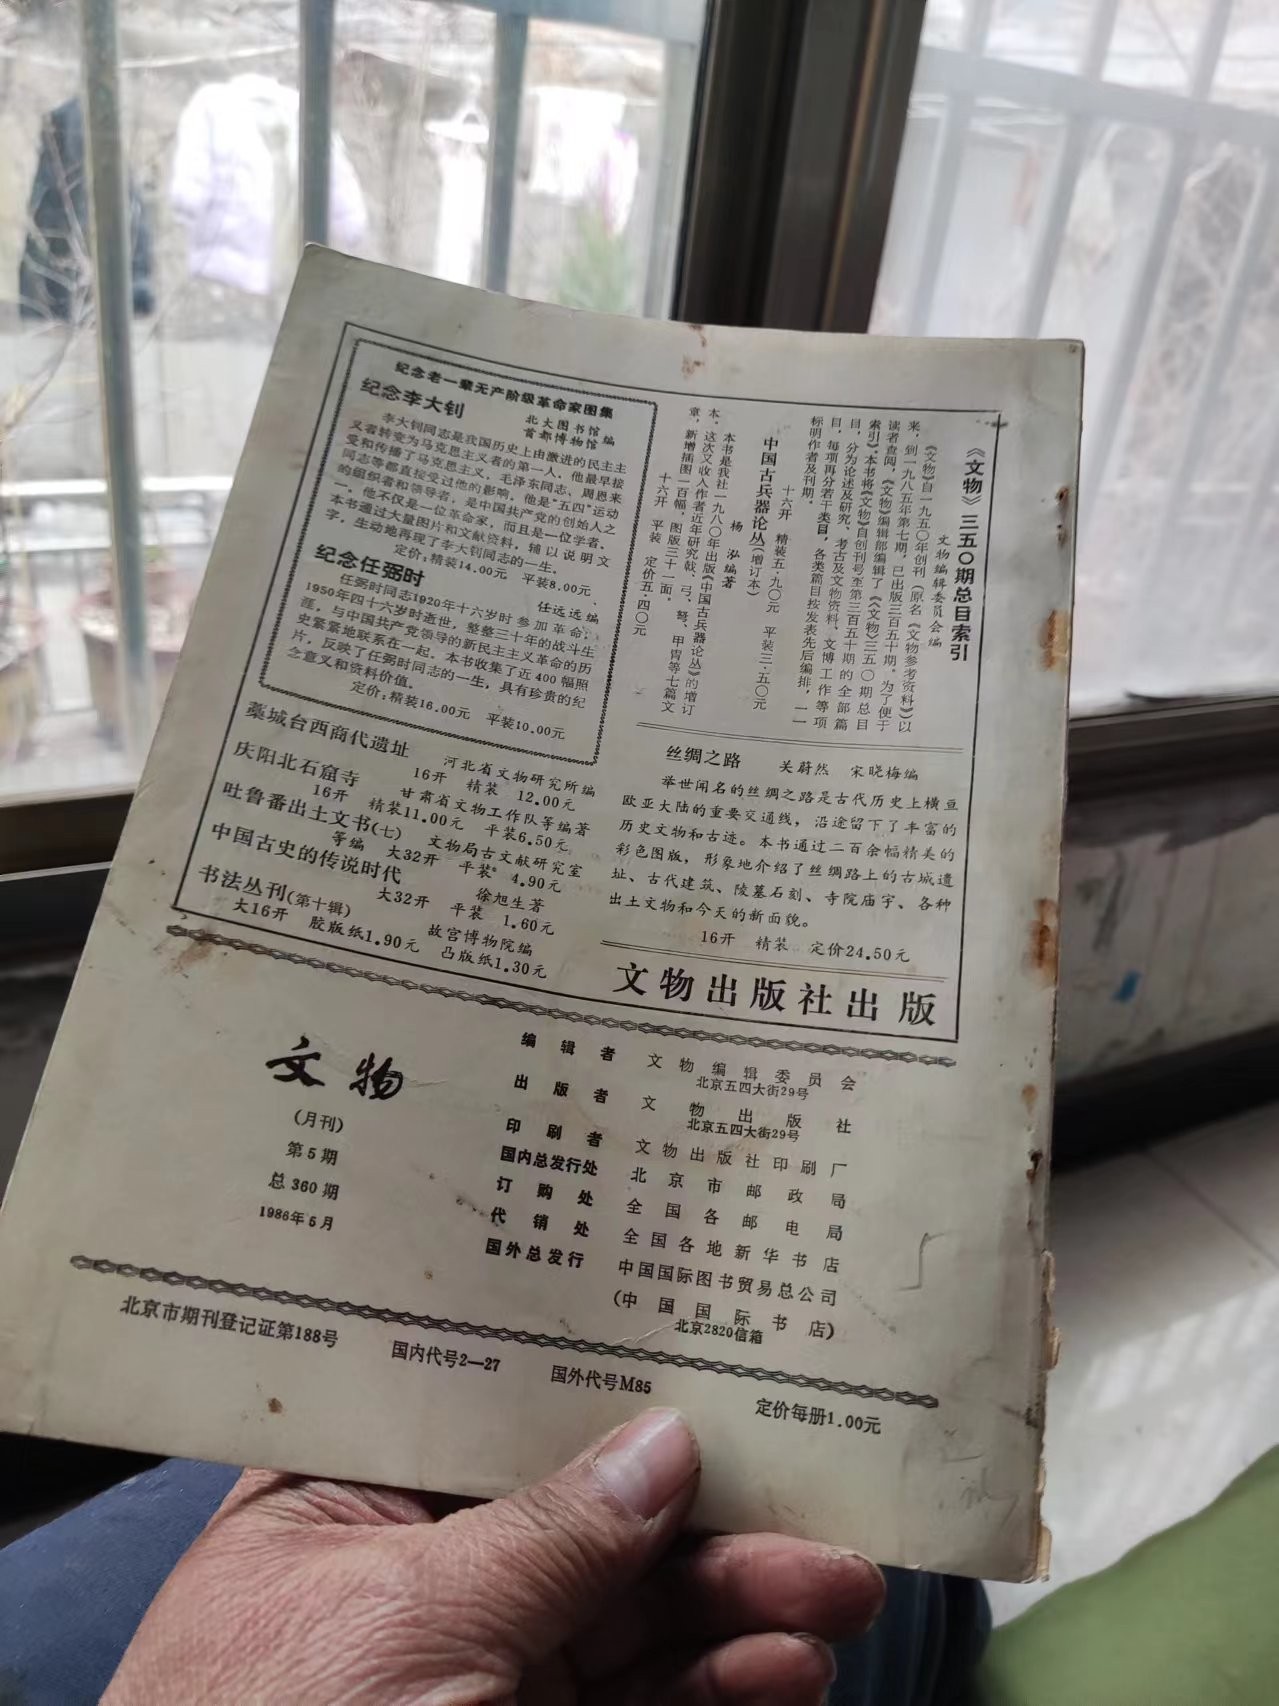 《文物》三五〇期总目索引
文物编辑委员会编
《文物》自一九五〇年创刊(原名《文物参考资料》)以
来，到一九八五年第七期，已出版三百五十期。为了便于
读者查阅，《文物》编辑部编辑了《〈文物〉三五〇期总目
索引》。本书将《文物》自创刊号至第三百五十期的全部篇
目，分为论述及研究、考古及文物资料、文博工作等项
目，每项再分若干类目，各类篇目按发表先后编排，一一
标明作者及刊期。
十六开 精装五·九〇元 平装三·五〇元
中国古兵器论丛(增订本)
杨泓编著
本书是我社一九八〇年出版《中国古兵器论丛》的增订
本，这次又收人作者近年研究戟、弓、弩、甲胄等七篇文
章，新增插图一百幅，图版三十一面。
十六开 平装 定价五·四〇元
纪念老一辈无产阶级革命家图集
纪念李大钊
北大图书馆
首都博物馆 编
李大钊同志是我国历史上由激进的民主主
义者转变为马克思主义者的第一人，他最早接
受和传播了马克思主义，毛泽东同志、周恩来
同志等都直接受过他的影响。他是“五四”运动
的组织者和领导者，是中国共产党的创始人之
一，他不仅是一位革命家，而且是一位学者。
本书通过大量图片和文献资料，辅以说明文
字，生动地再现了李大钊同志的一生。
定价：精装14.00元 平装8.00元
纪念任弼时
任远远编
任弼时同志1920年十六岁时参加革命；
1950年四十六岁时逝世，整整三十年的战斗生
涯，与中国共产党领导的新民主主义革命的历
史紧紧地联系在一起。本书收集了近400幅照
片，反映了任弼时同志的一生，具有珍贵的纪
念意义和资料价值。
定价：精装16.00元 平装10.00元
丝绸之路 关蔚然 宋晓梅编
举世闻名的丝绸之路是古代历史上横亘
欧亚大陆的重要交通线，沿途留下了丰富的
历史文物和古迹。本书通过二百余幅精美的
彩色图版，形象地介绍了丝绸路上的古城遗
址、古代建筑、陵墓石刻、寺院庙宇、各种
出土文物和今天的新面貌。
16开 精装 定价24.50元
藁城台西商代遗址 河北省文物研究所编
16开 精装 12.00元
庆阳北石窟寺 甘肃省文物工作队等编著
16开 精装11.00元 平装6.50元
吐鲁番出土文书(七) 文物局古文献研究室
等编 大32开 平装 4.90元
中国古史的传说时代 徐旭生著
大32开 平装 1.60元
书法丛刊(第十辑) 故宫博物院编
大16开 胶版纸1.90元 凸版纸1.30元
文物出版社出版
文物
(月刊)
第5期
总360期
1986年5月
编辑者 文物编辑委员会
北京五四大街29号
出版者 文物出版社
北京五四大街29号
印刷者 文物出版社印刷厂
国内总发行处 北京市邮政局
订购处 全国各邮电局
代销处 全国各地新华书店
国外总发行 中国国际图书贸易总公司
(中国国际书店)
北京2820信箱
北京市期刊登记证第188号 国内代号2—27 国外代号M85 定价每册1.00元